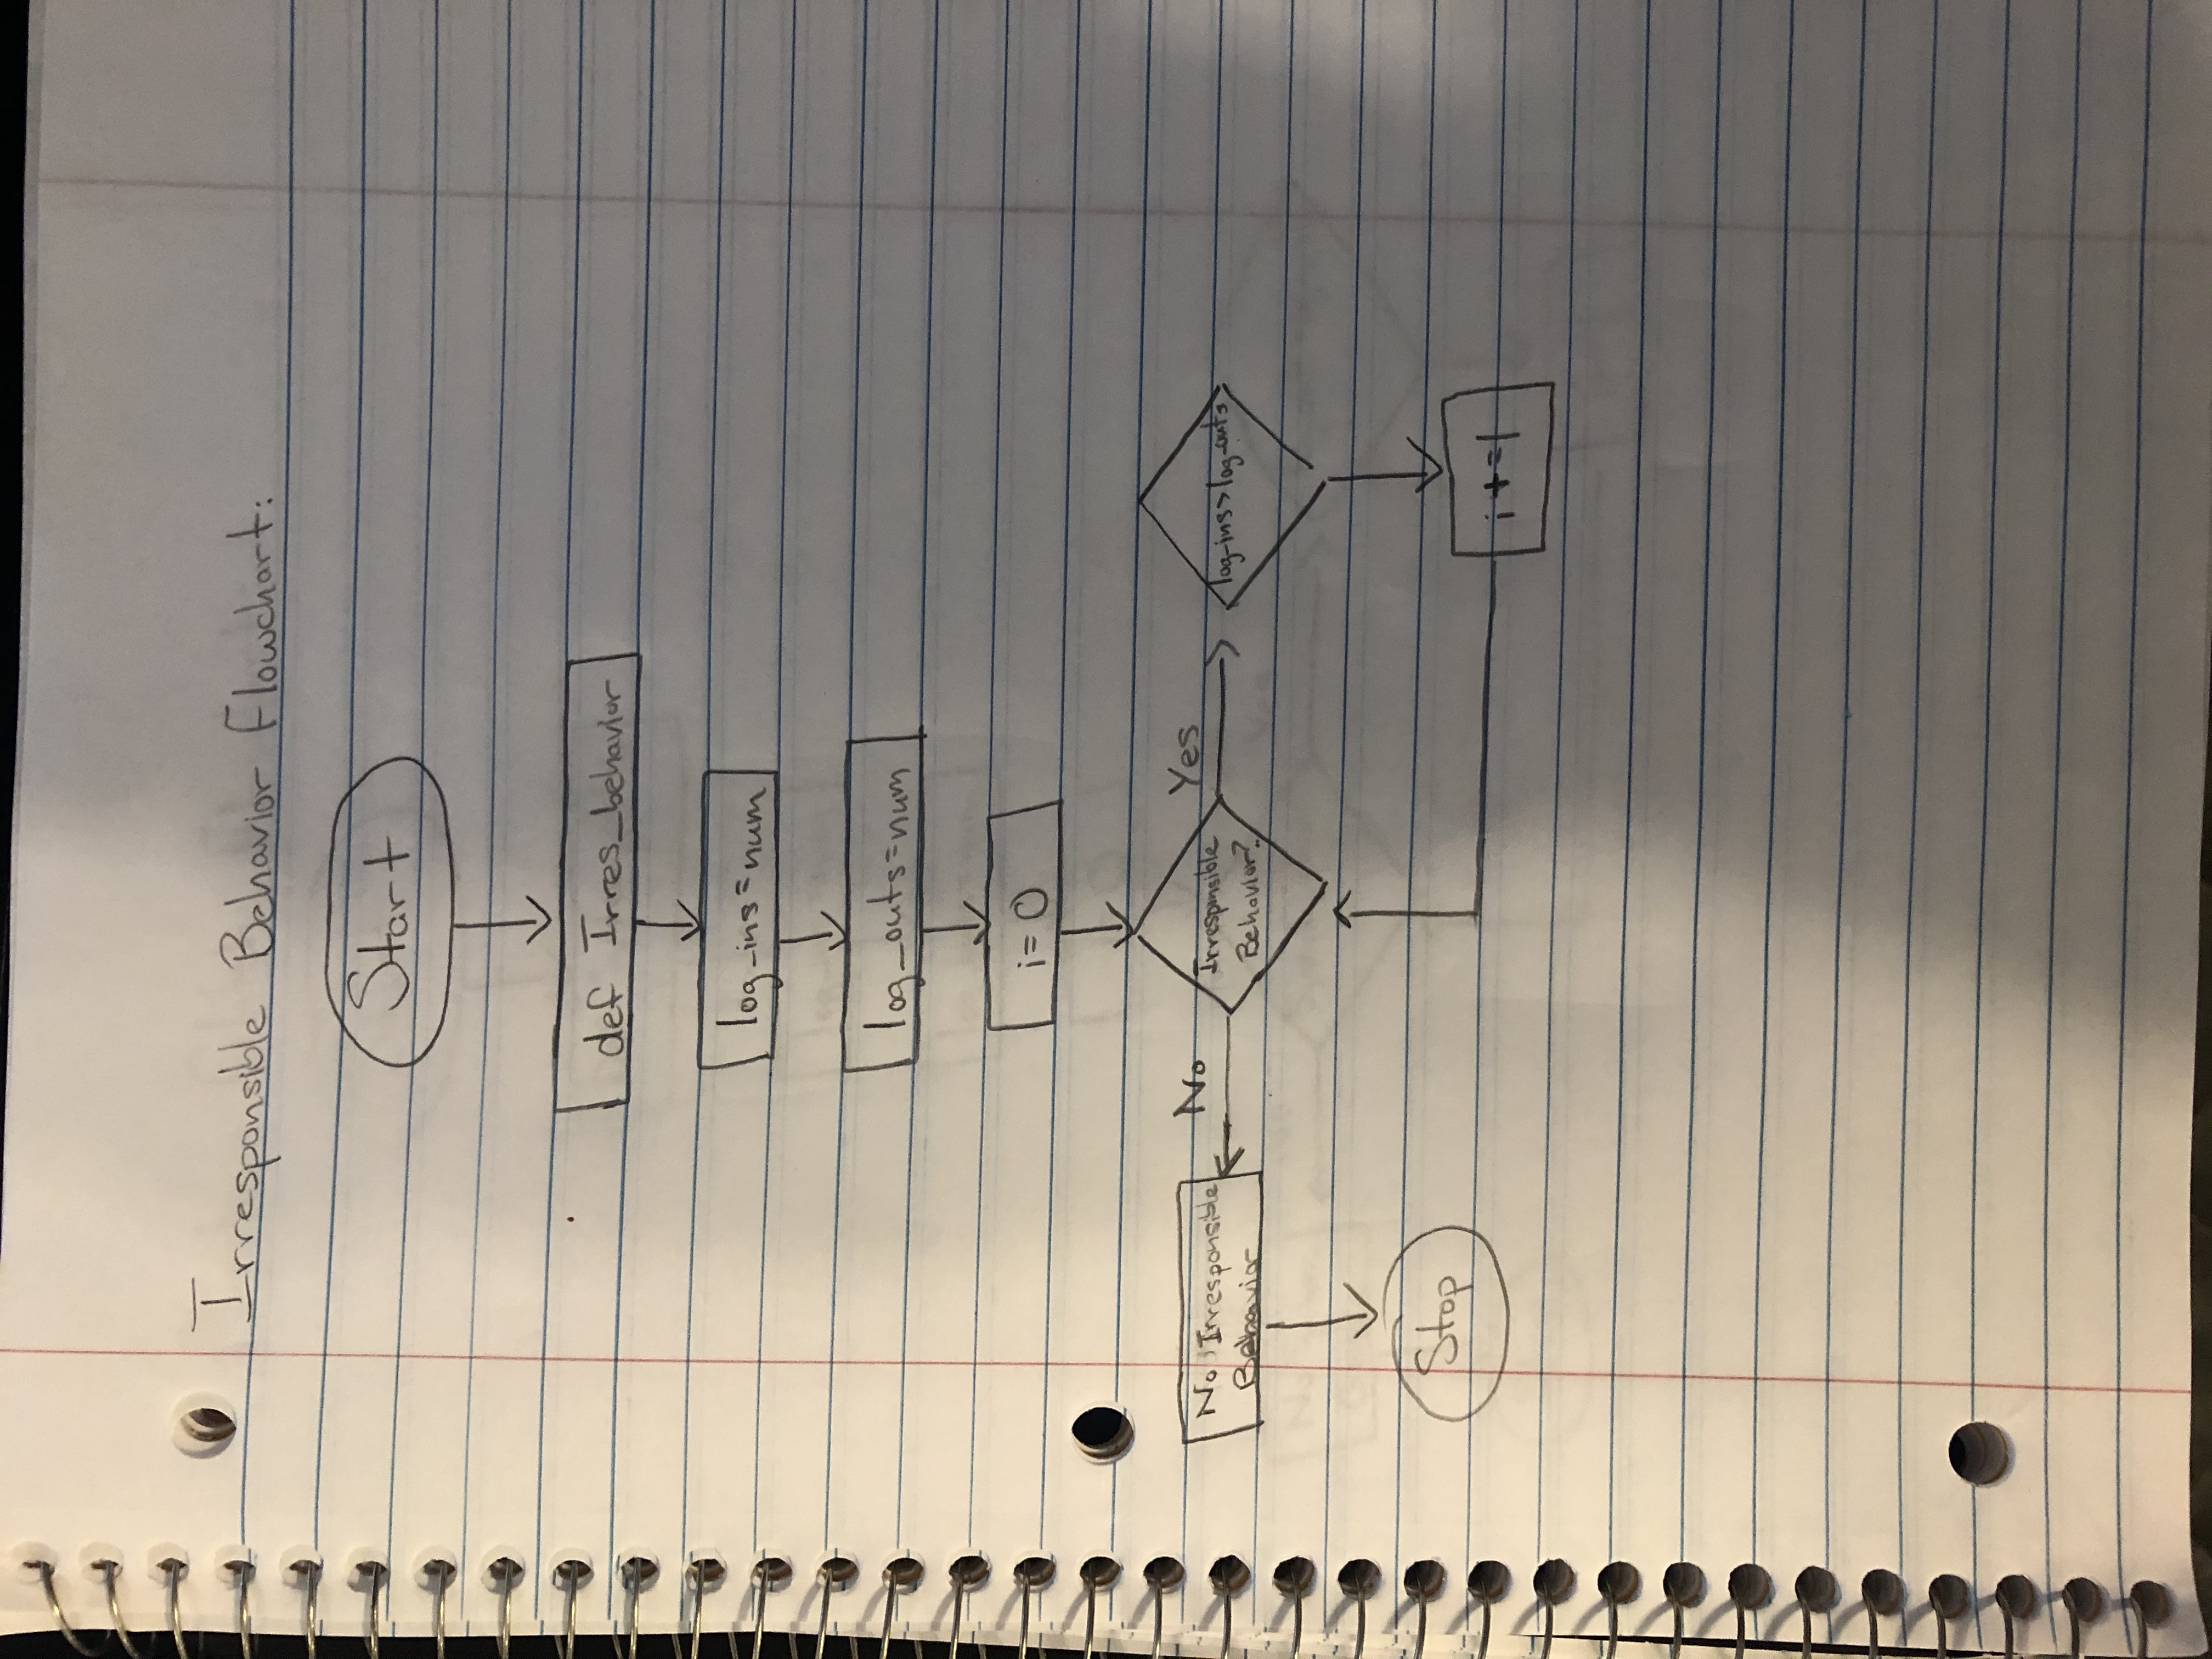 Irresponsible Behavior Flowchart:
Start
def Irres_behavior
log_ins=num
log_outs=num
i=0
No Irresponsible
Behavior
No
Irresponsible
Behavior?
Yes
log_ins>log_outs
Stop
i+=1